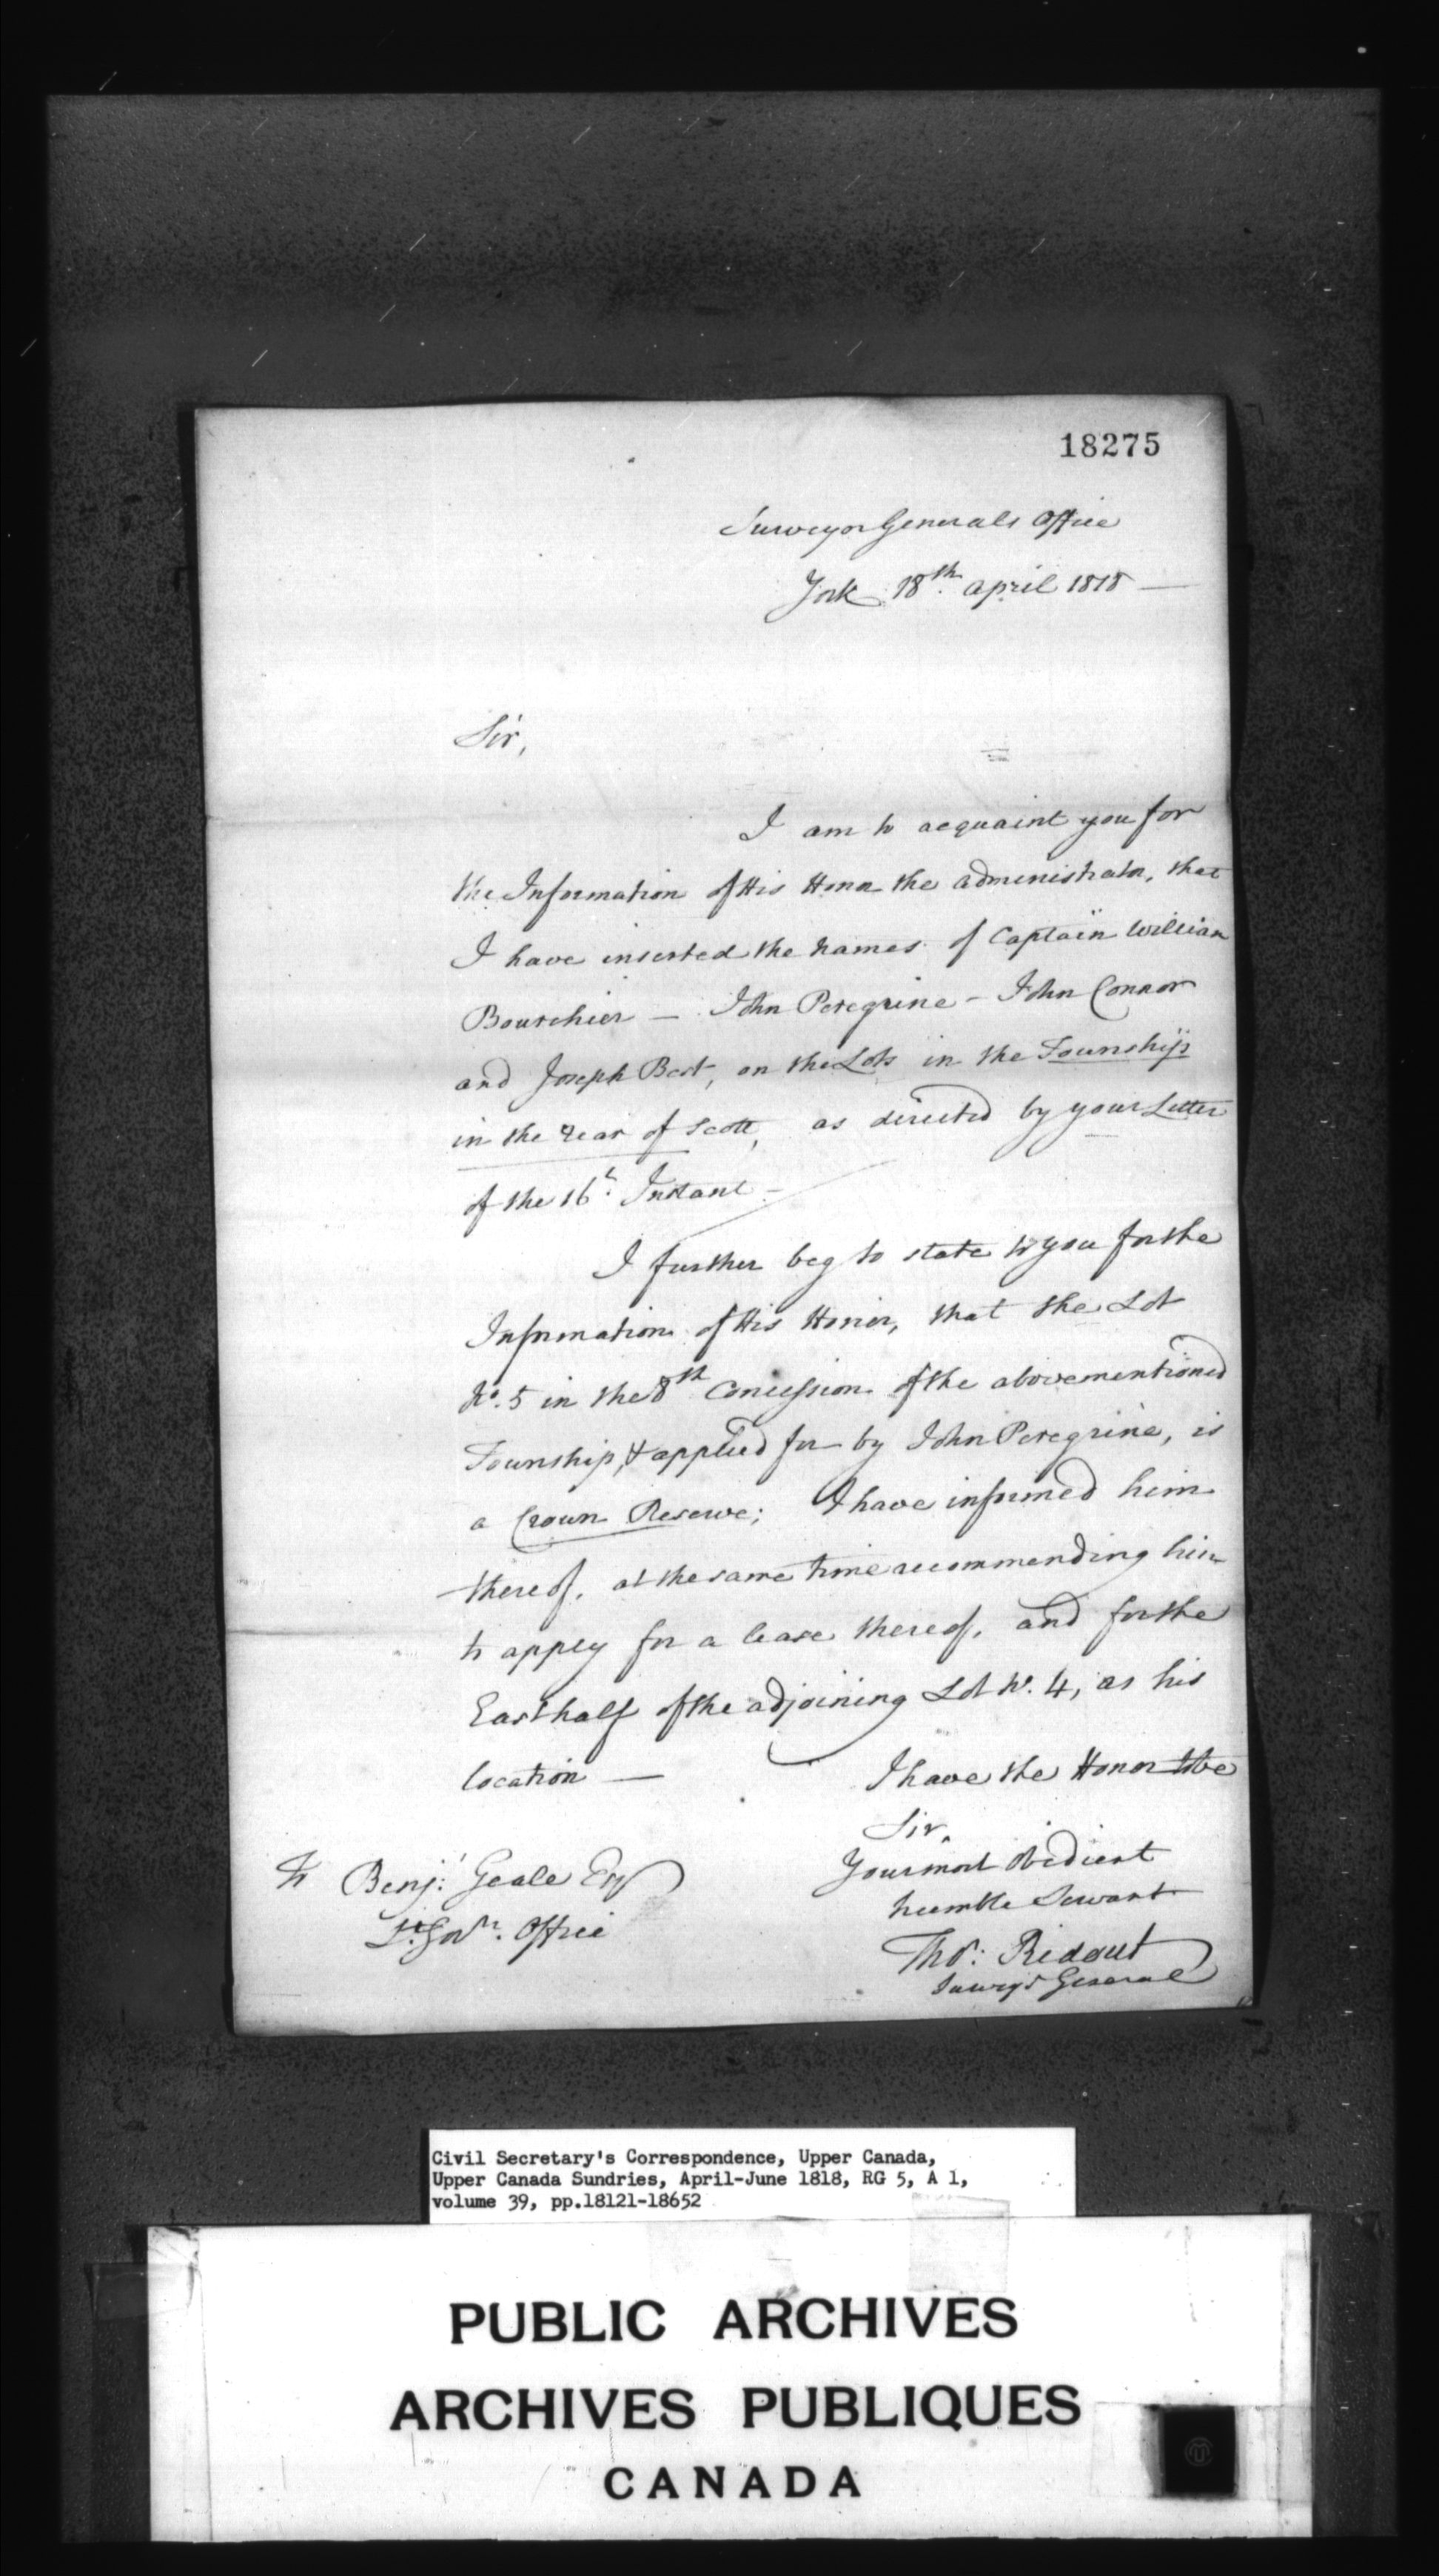 18275
Surveyor Generals Office
York 18th. april 1818 —
Sir,
I am to acquaint you for
the Information of His Honor the administrator, that
I have inserted the names of Captain William
Bourchier — John Peregrine — John Connor
and Joseph Best, on the Lots in the Township
in the rear of Scott, as directed by your Letter
of the 16th. Instant —
I further beg to state to you for the
Information of His Honor, that the Lot
No. 5 in the 8th Concession of the abovementioned
Township, & applied for by John Peregrine, is
a Crown Reserve; I have informed him
thereof, at the same time recommending him
to apply for a lease thereof, and for the
East half of the adjoining Lot No. 4, as his
location —
I have the Honor to be
Sir,
Your most Obedient
humble Servant
Thos: Ridout
Survey'r General
To Benj: Geale Esq
Lt. Govrs. Office
Civil Secretary's Correspondence, Upper Canada,
Upper Canada Sundries, April-June 1818, RG 5, A 1,
volume 39, pp.18121-18652
PUBLIC ARCHIVES
ARCHIVES PUBLIQUES
CANADA